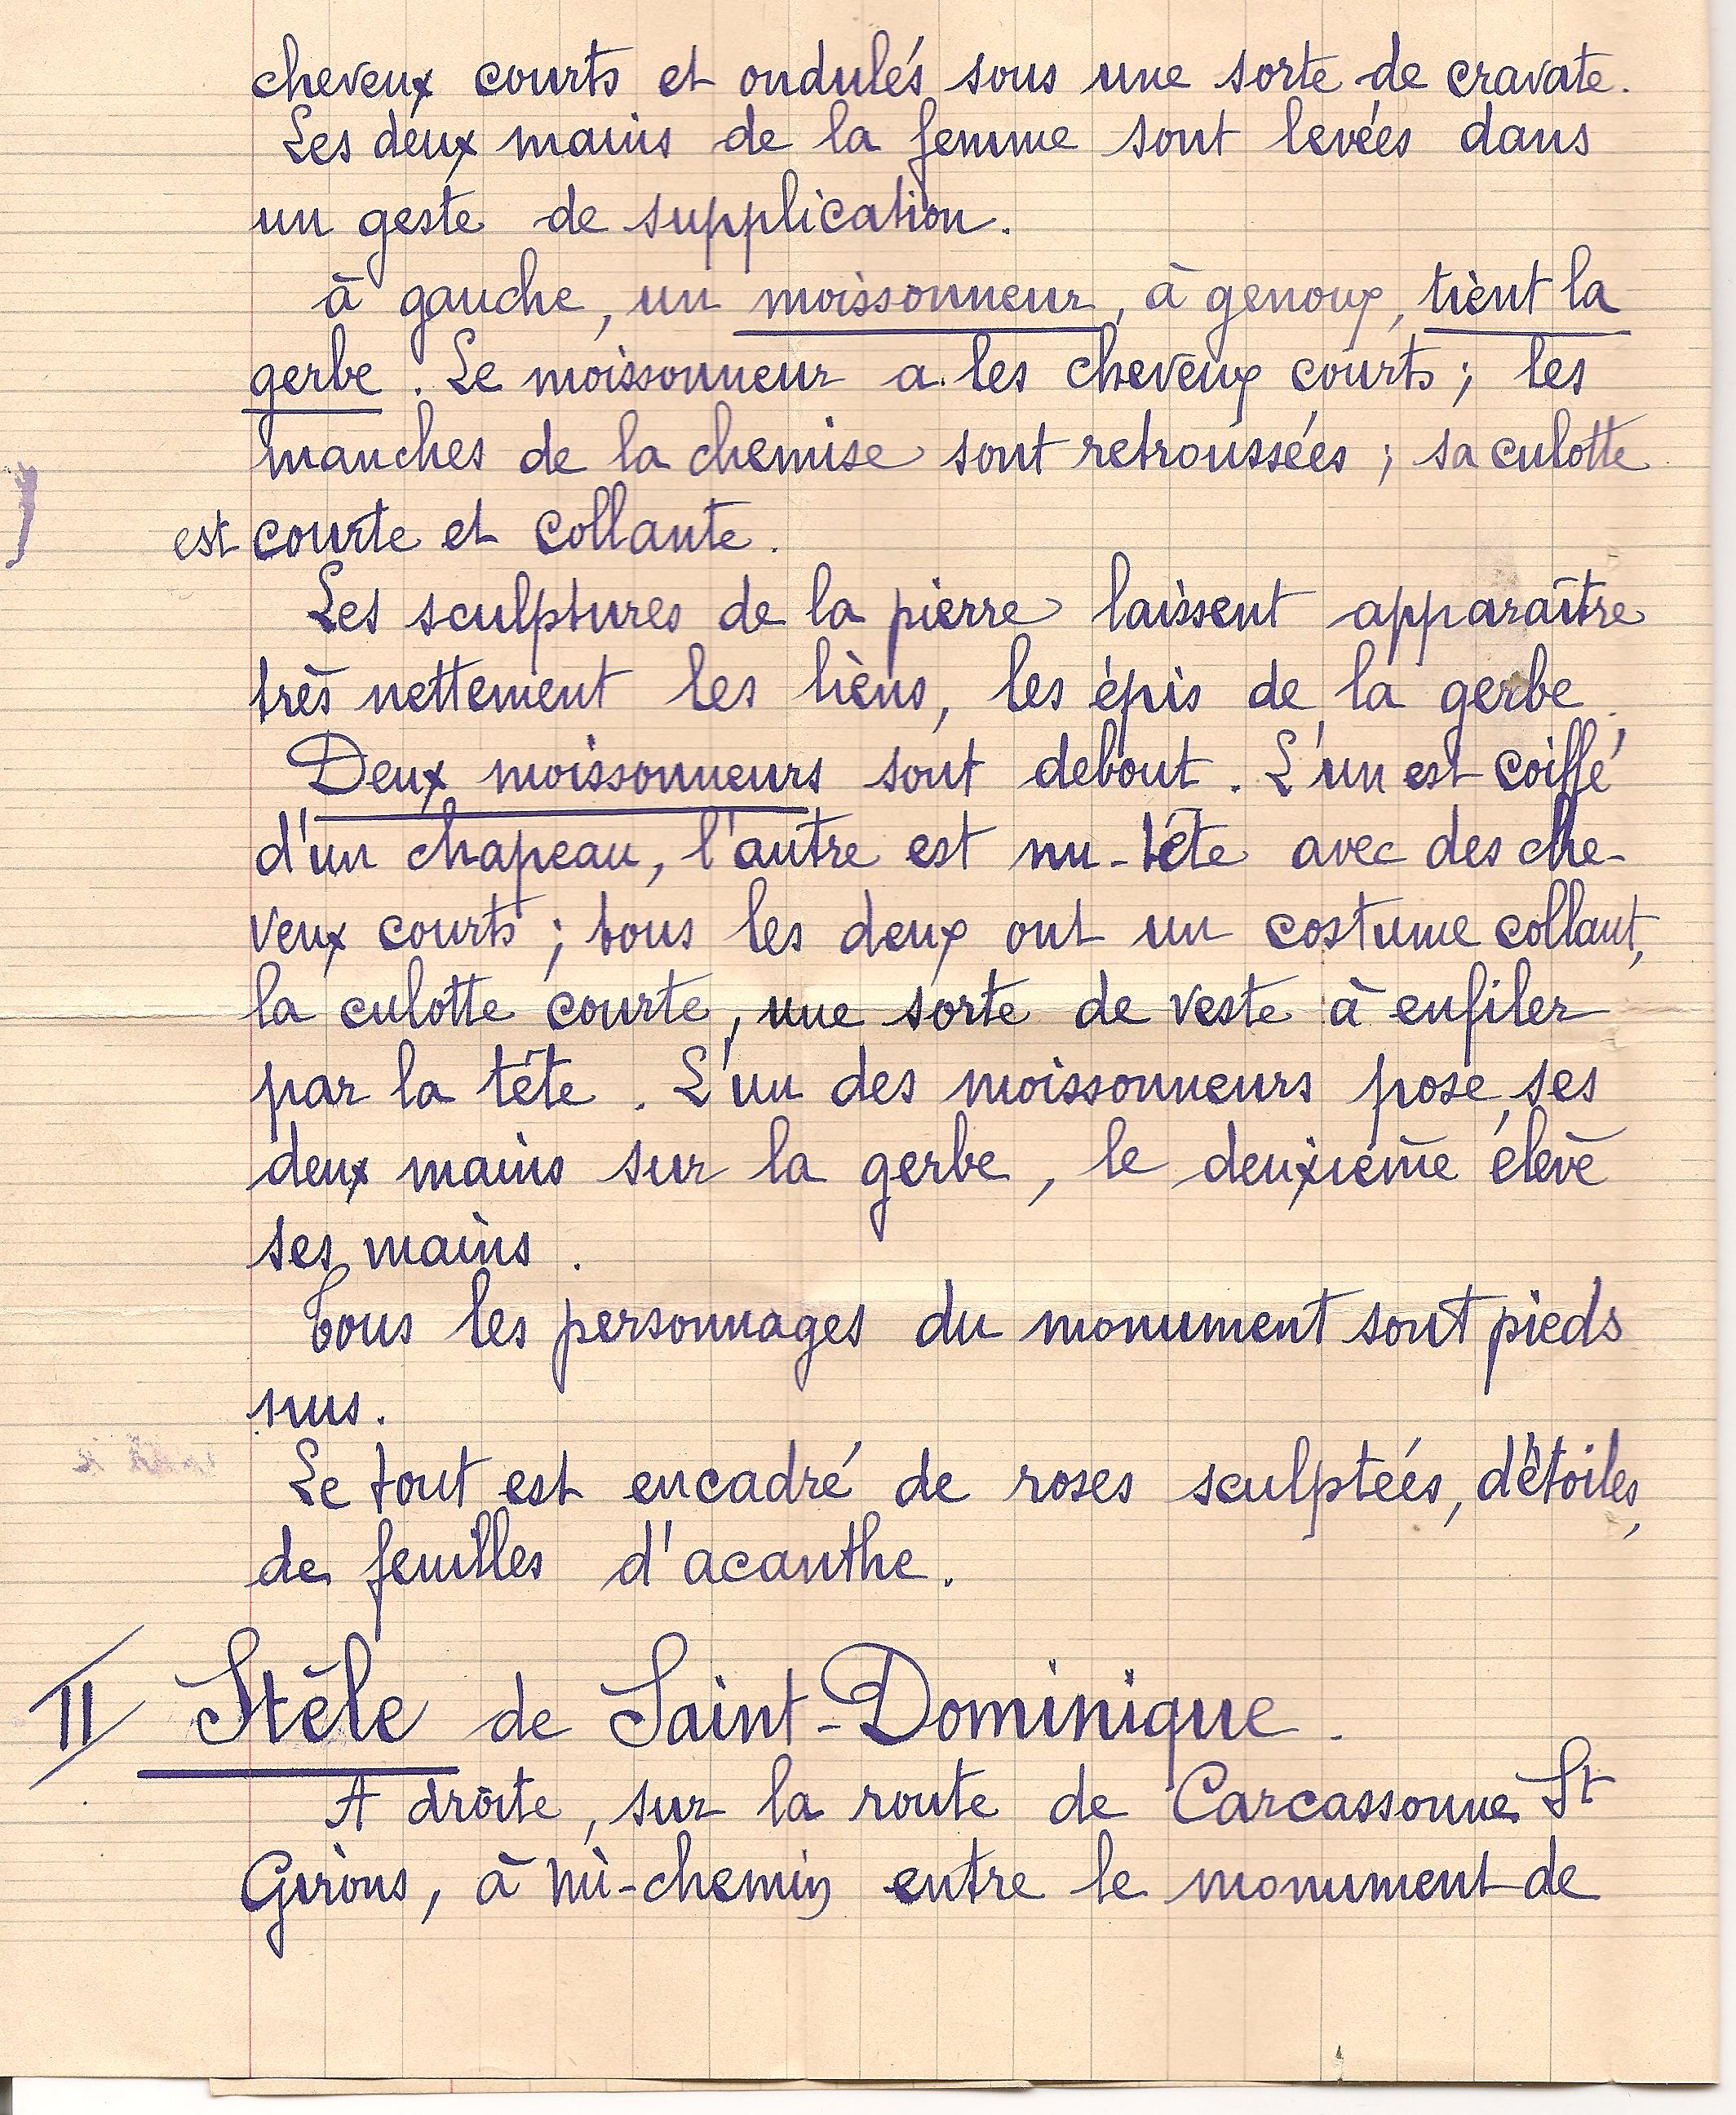 cheveux courts et ondulés sous une sorte de cravate.
Les deux mains de la femme sont levées dans
un geste de supplication.
à gauche, un moissonneur, à genoux, tient la
gerbe. Le moissonneur a les cheveux courts ; les
manches de la chemise sont retroussées ; sa culotte
est courte et collante.
Les sculptures de la pierre laissent apparaître
très nettement les liens, les épis de la gerbe.
Deux moissonneurs sont debout. L'un est coiffé
d'un chapeau, l'autre est nu-tête avec des che-
veux courts ; tous les deux ont un costume collant,
la culotte courte, une sorte de veste à enfiler
par la tête. L'un des moissonneurs pose ses
deux mains sur la gerbe, le deuxième élève
ses mains.
Tous les personnages du monument sont pieds
nus.
Le tout est encadré de roses sculptées, d'étoiles,
de feuilles d'acanthe.
II Stèle de Saint-Dominique.
A droite, sur la route de Carcassonne St
Girons, à mi-chemin entre le monument de